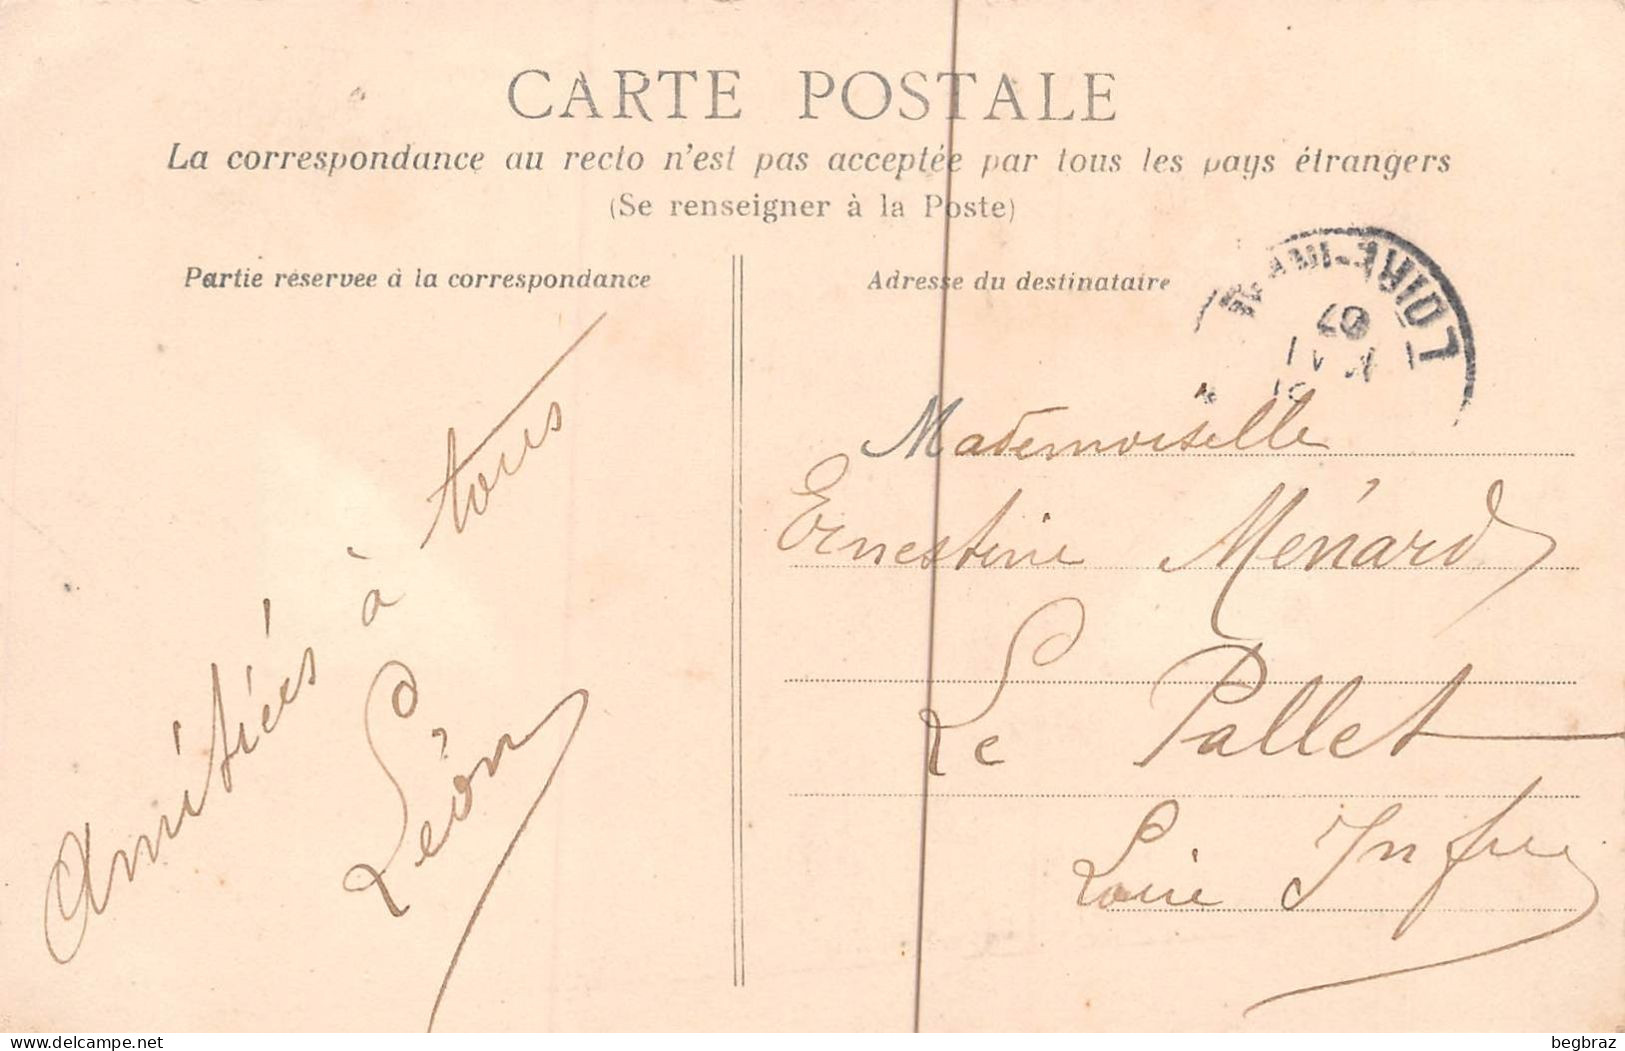 CARTE POSTALE
La correspondance au recto n'est pas acceptée par tous les pays étrangers
(Se renseigner à la Poste)
Partie réservee à la correspondance
Adresse du destinataire
LOIRE-INFRE
07
Amitiées à tous
Léon
Mademoiselle
Ernestine Ménard
Le Pallet
Loire Infre
delcampe.net
begbraz